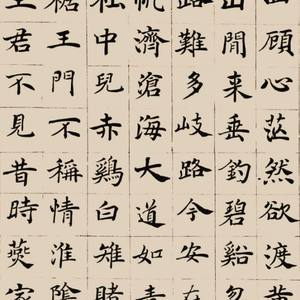 四顧心茫然欲渡黃
山閒来垂釣碧谿忽
路難多岐路今安在
帆濟滄海大道如青
社中兒赤鷄白雉賭
裾王門不稱情淮陰
生君不見昔時燕家